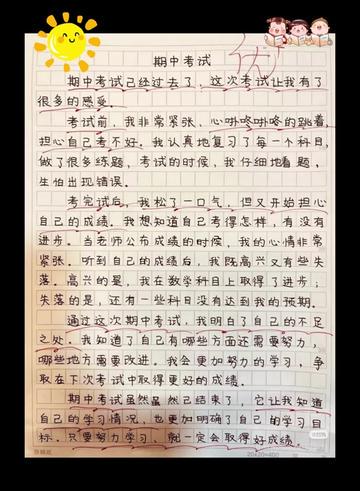 期中考试
优
期中考试已经过去了，这次考试让我有了
很多的感受。
考试前，我非常紧张、心卟咚卟咚的跳着，
担心自己考不好。我认真地复习了每一个科目，
做了很多练题，考试的时候，我仔细地看题，
生怕出现错误。
考完试后，我松了一口气，但又开始担心
自己的成绩。我想知道自己考得怎样，有没有
进步。当老师公布成绩的时候，我的心情非常
紧张。听到自己的成绩后，我既高兴又有些失
落。高兴的是，我在数学科目上取得了进步；
失落的是，还有一些科目没有达到我的预期。
通过这次期中考试，我明白了自己的不足
之处。我知道了自己有哪些方面还需要努力，
哪些地方需要改进。我会更加努力的学习，争
取在下次考试中取得更好的成绩。
期中考试虽然虽然已结束了，它让我知道
自己的学习情况，也更加明确了自己的学习目
标。只要努力学习，就一定会取得好成绩。
20×20=400